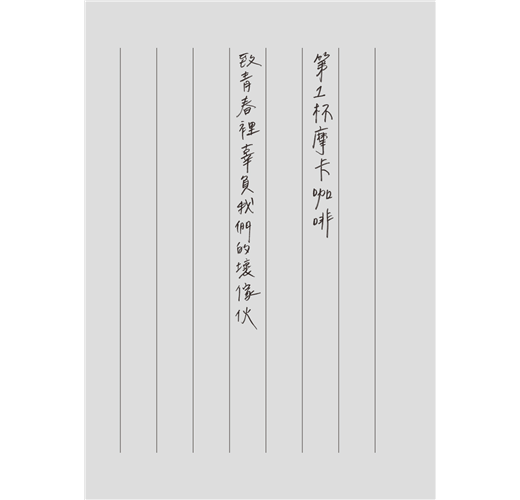 第1杯摩卡咖啡
致青春裡辜負我們的壞傢伙